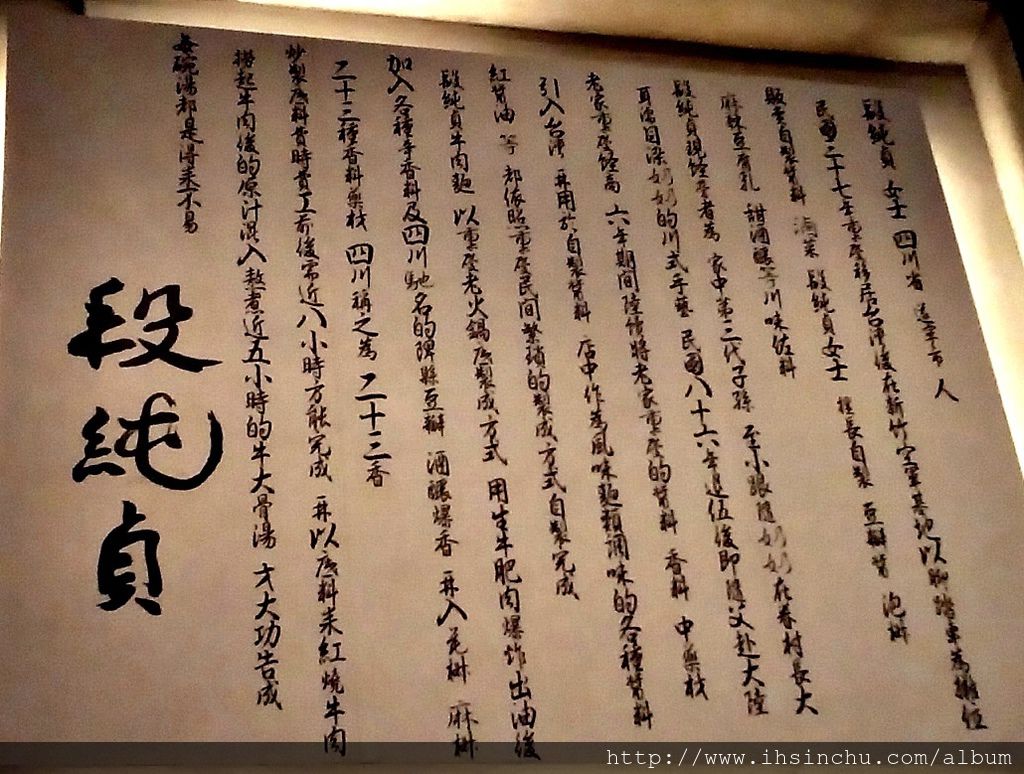 段純貞 女士 四川省 遂寧市 人
民國三十七年重慶移居台灣後在新竹空軍基地以腳踏車為攤位
販賣自製醬料 滷菜 段純貞女士 擅長自製 豆瓣醬 泡椒
麻辣豆腐乳 甜酒釀等川味佐料
段純貞現經營者為 家中第三代子孫 至小跟隨奶奶在眷村長大
耳濡目染奶奶的川式手藝 民國八十六年退伍後即隨父赴大陸
老家重慶經商 六年期間陸續將老家重慶的醬料 香料 中藥材
引入台灣 并用於自製醬料 店中作為風味麵類調味的各種醬料
紅醬油 等 都依照重慶民間繁瑣的製成方式自製完成
段純貞牛肉麵 以重慶老火鍋底製成方式 用生牛肥肉爆炸出油後
加入各種辛香料及四川馳名的郫縣豆瓣 酒釀爆香 再入花椒 麻椒
二十三種香料藥材 四川稱之為 二十三香
炒製底料費時費工前後需近八小時方能完成 再以底料來紅燒牛肉
撈起牛肉後的原汁混入熬煮近五小時的牛大骨湯 才大功告成
每碗湯都是得來不易
段純貞
http://www.ihsinchu.com/album